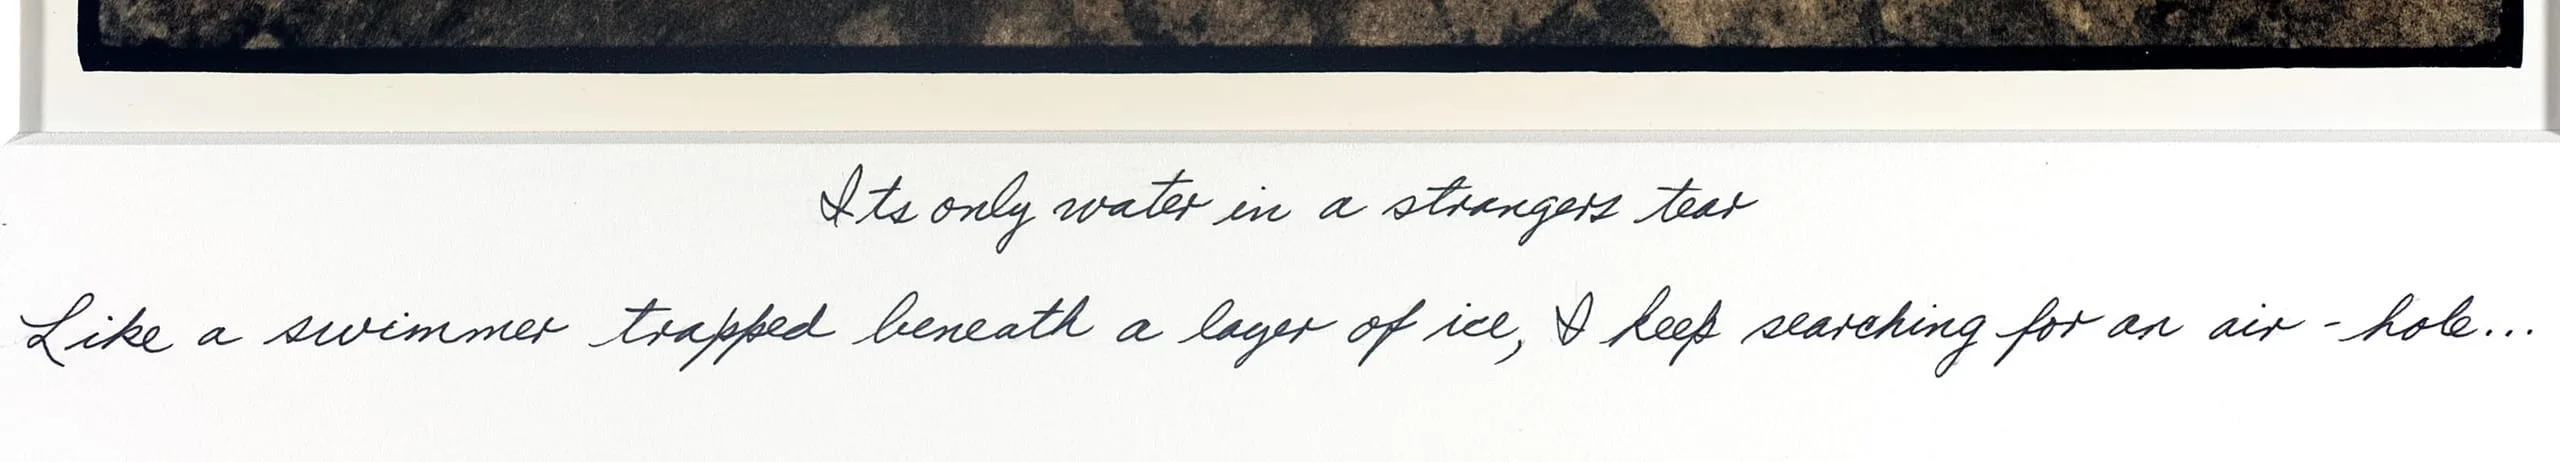 Its only water in a strangers tear
Like a swimmer trapped beneath a layer of ice, I keep searching for an air-hole...